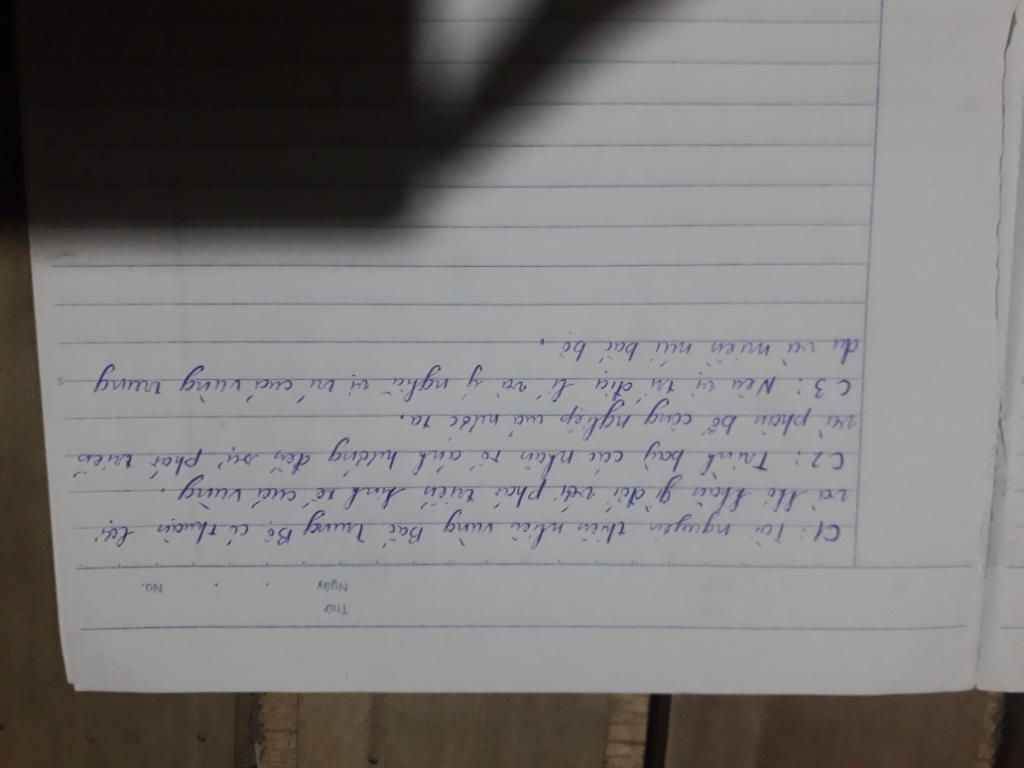 Thứ
Ngày . . No.
C1: Tài nguyên thiên nhiên vùng Bắc Trung Bộ có thuận lợi
và khó khăn gì đối với phát triển kinh tế của vùng.
C2: Trình bày các nhân tố ảnh hưởng đến sự phát triển
và phân bố công nghiệp của nước ta.
C3: Nêu vị trí địa lí và ý nghĩa vị trí của vùng trung
du và miền núi bắc bộ.